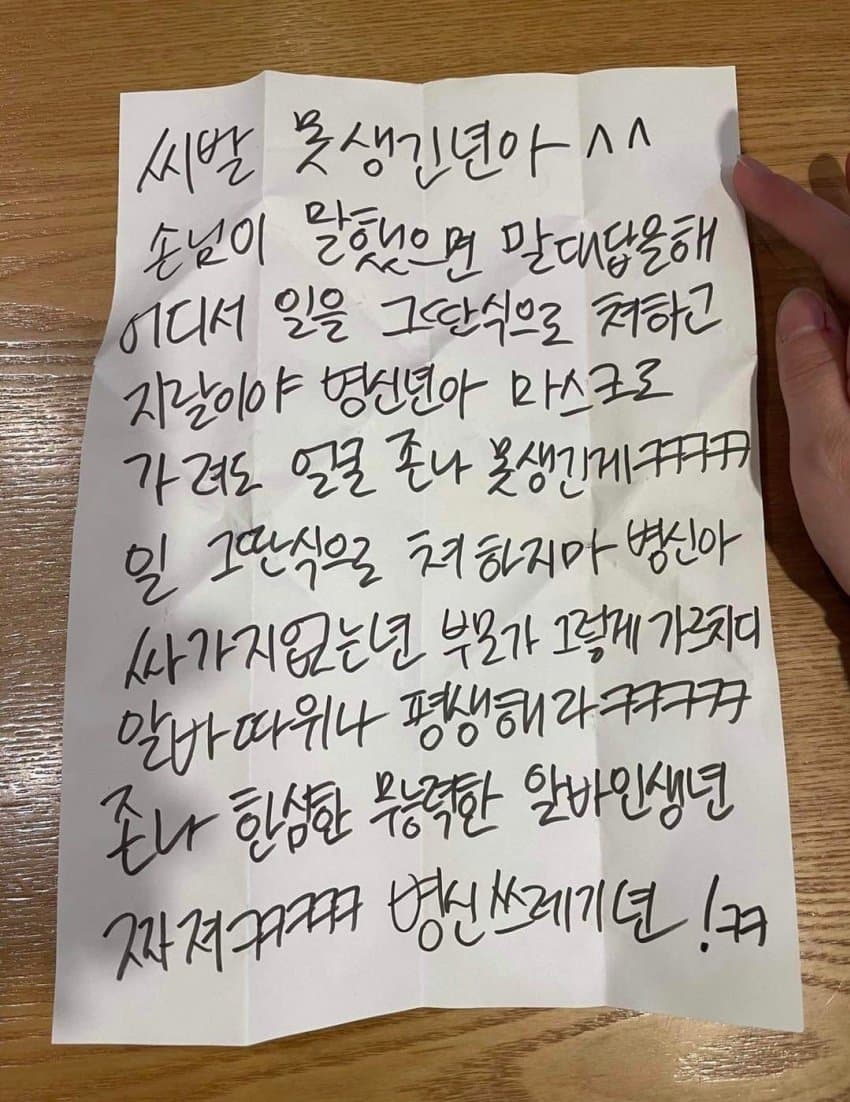 씨발 못생긴년아 ^^
손님이 말했으면 말대답을해
어디서 일을 그딴식으로 쳐하고
지랄이야 병신년아 마스크로
가려도 얼굴 존나 못생긴게ㅋㅋㅋㅋ
일 그딴식으로 쳐 하지마 병신아
싸가지없는년 부모가 그렇게 가르치디
알바따위나 평생해라ㅋㅋㅋㅋㅋ
존나 한심한 무능력한 알바인생년
꺼져ㅋㅋㅋㅋ 병신쓰레기년!ㅋㅋ